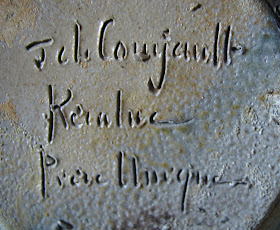 J. d. l. Couyault
Keraluc
Pièce Unique